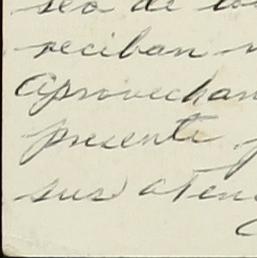 seo de
reciban
Aprovechan
presente
sus aten